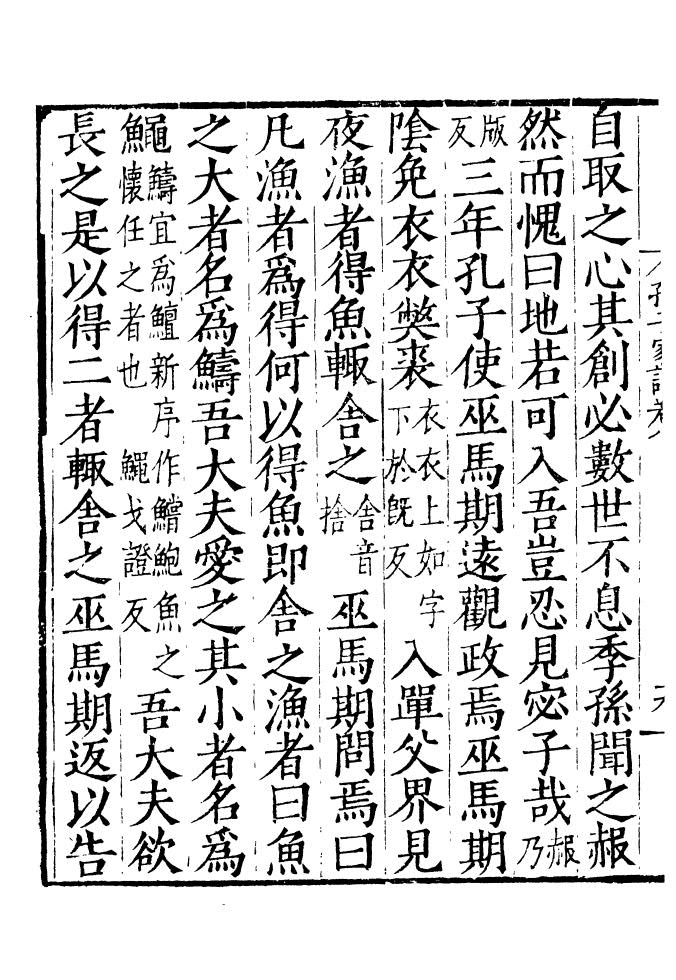 孔子家語卷八
自取之心其創必數世不息季孫聞之赧
然而愧曰地若可入吾豈忍見宓子哉赧乃
版反三年孔子使巫馬期遠觀政焉巫馬期
陰免衣衣獘裘衣衣上如字下於旣反入單父界見
夜漁者得魚輙舍之舍音捨巫馬期問焉曰
凡漁者爲得何以得魚即舍之漁者曰魚
之大者名爲鱣吾大夫愛之其小者名爲
鱦鱣宜爲鱣新序作鱛鮑魚之懷任之者也鱦戈證反吾大夫欲
長之是以得二者輙舍之巫馬期返以告